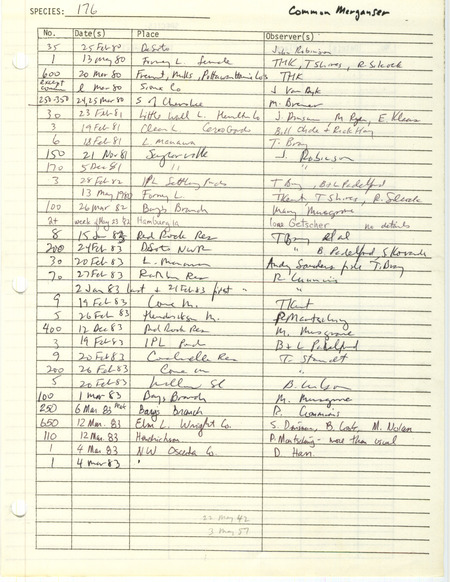 SPECIES: 176 Common Merganser
No. Date(s) Place Observer(s)
35 25 Feb 80 DeSoto John Robinson
1 13 May 80 Forney L. female THK, T Shires, R Silcock
600 20 Mar 80 Fremont, Mills, Pottawattamie Co's THK
2 Mar 80 Sioux Co J Van Dyk
250-350 24,25 Mar 80 S of Cherokee M. Brewer
30 23 Feb 81 Little Wall L. Hamilton Co J. Dinsmore M. Ryan, E Klaas
3 19 Feb 81 Clear L. Cerro Gordo Bill Clude &
6 18 Feb 81 L. Manawa T. Bray
150 21 Nov 81 Saylorville J Robinson
170 5 Dec 81 " "
3 28 Feb 82 IPL Settling Ponds T Bray, B & L Padelford
13 May 1980 Forney L. TKent, T Shires, R. Silcock
100 26 Mar 82 Bays Branch Mary Musgrove
2+ week of May 53 Hamburg Ia Iona Getscher no details
8 15 Jan 83 Red Rock Res T Bray et al
200 24 Feb 83 DeSoto NWR " B Padelford, S Kovanda
30 20 Feb 83 L. Manawa Andy Saunders fide T. Bray
70 27 Feb 83 Rathbun Res R Cummins
2 Jan 83 last + 21 Feb 83 first " "
9 19 Feb 83 Cone M. TKent
5 26 Feb 83 Hendrickson M. P Martsching
400 12 Dec 83 Red Rock Res M. Musgrove
3 19 Feb 83 IPL Pond B & L Padelford
9 20 Feb 83 Coralville Res T. Staudt
200 26 Feb 83 Cone M "
5 20 Feb 83 St B. Wilson
100 1 Mar 83 Bays Branch M. Musgrove
250 6 Mar 83 Bays Branch R. Cummins
650 12 Mar. 83 Elm L. Wright Co. S. Dinsmore, B. M. Nolan
110 12 Mar 83 Hendrickson P. Martsching - more than usual
1 4 Mar 83 NW Osceola Co D. Harr.
1 4 Mar 83 "
22 May 42
3 May 57